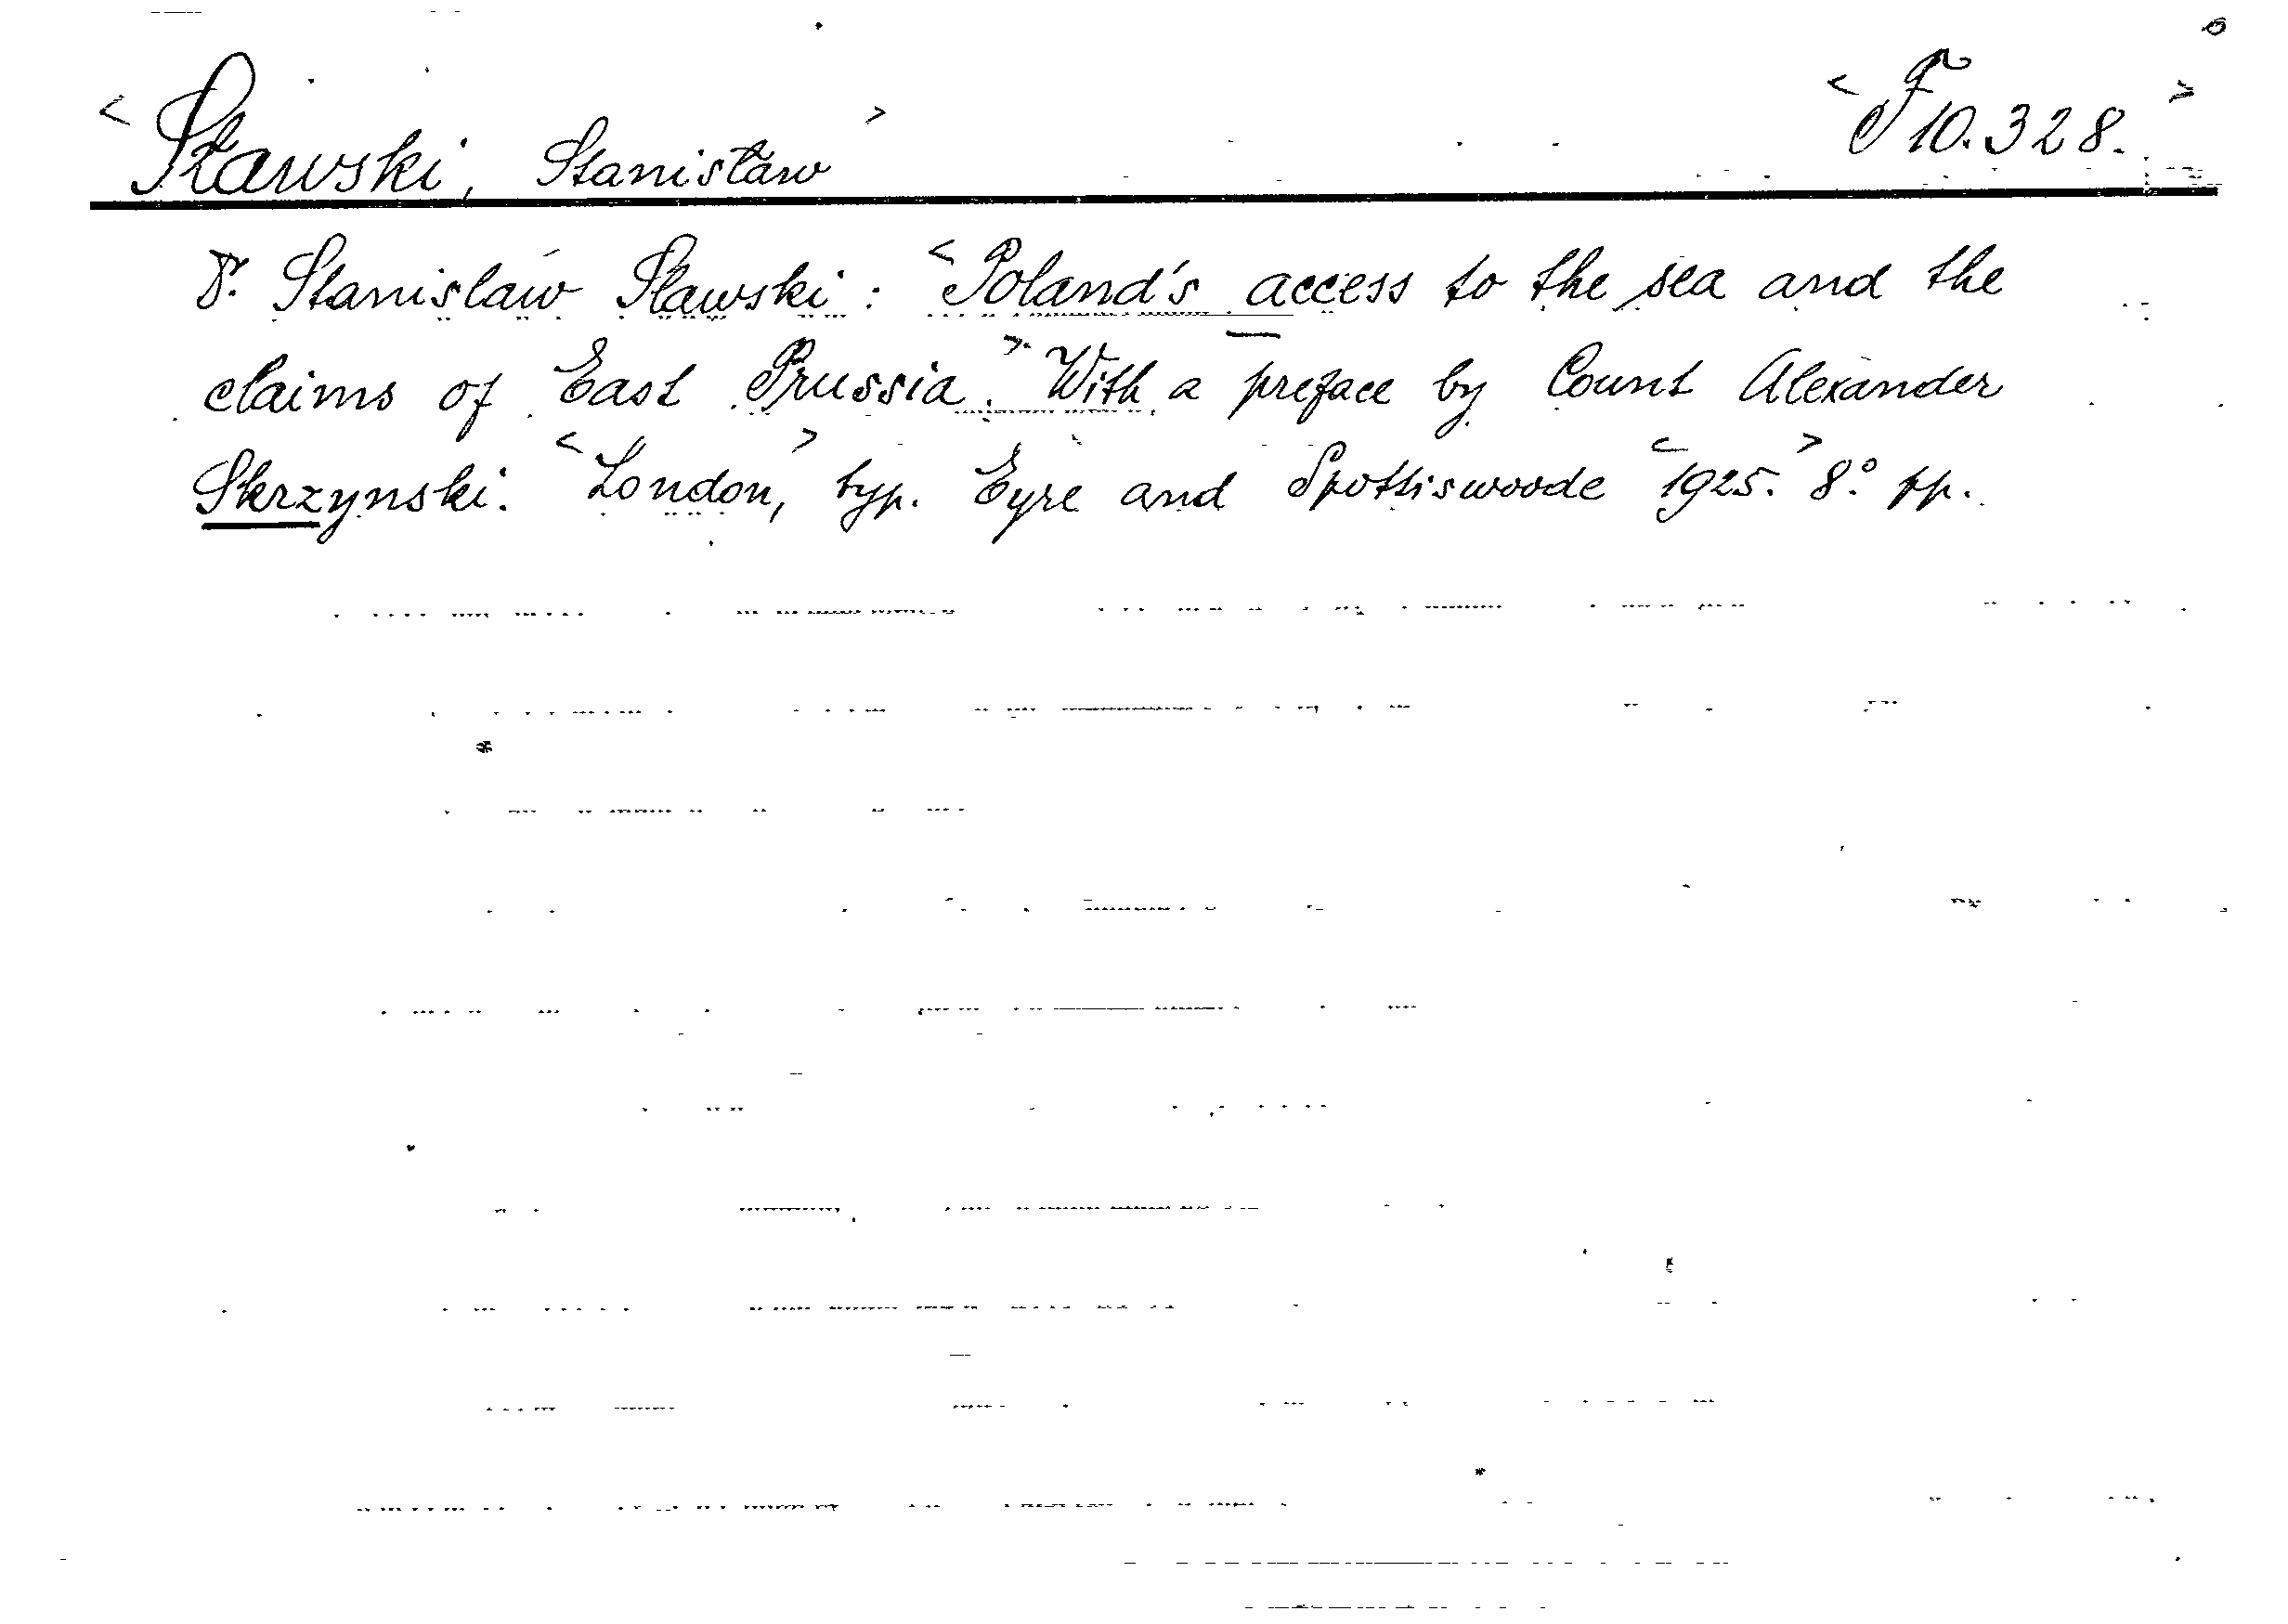 <Sławski, Stanisław> <F 10.328.>
Dr. Stanislaw Sławski: <Poland's access to the sea and the
claims of East Prussia.> With a preface by Count Alexander
Skrzynski. <London,> typ. Eyre and Spottiswoode <1925.> 8° pp.